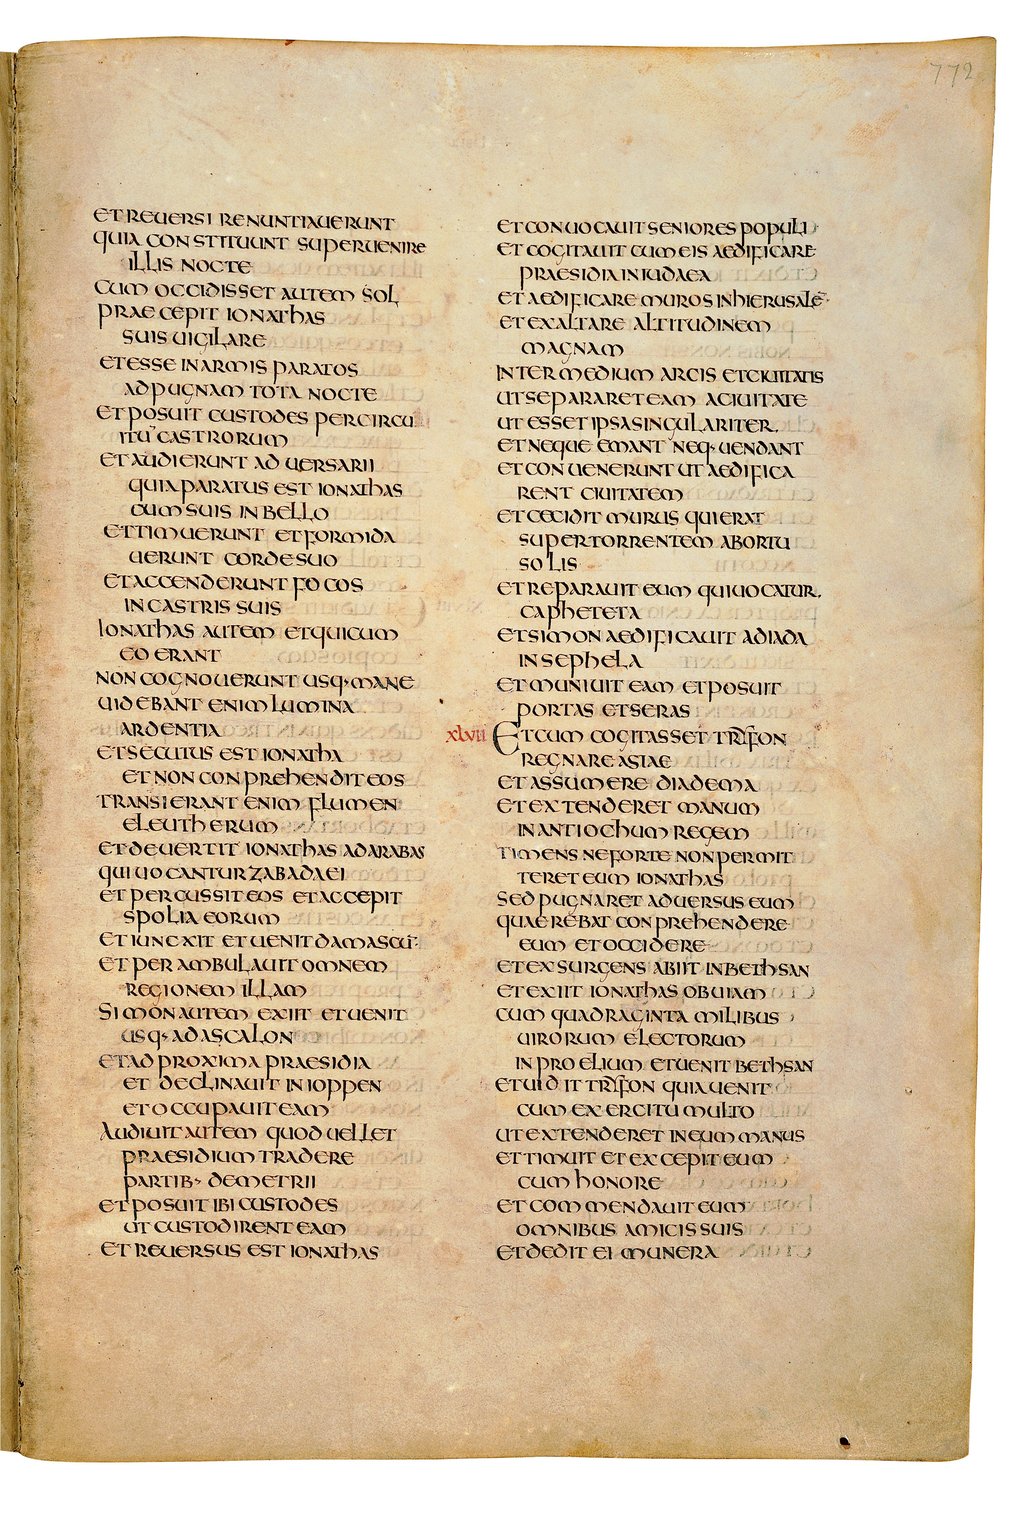 772
ET REUERSI RENUNTIAUERUNT
QUIA CONSTITUUNT SUPERUENIRE
ILLIS NOCTE
CUM OCCIDISSET AUTEM SOL
PRAECEPIT IONATHAS
SUIS UIGILARE
ET ESSE IN ARMIS PARATOS
AD PUGNAM TOTA NOCTE
ET POSUIT CUSTODES PER CIRCU
ITŪ CASTRORUM
ET AUDIERUNT ADUERSARII
QUIA PARATUS EST IONATHAS
CUM SUIS IN BELLO
ET TIMUERUNT ET FORMIDA
UERUNT CORDE SUO
ET ACCENDERUNT FOCOS
IN CASTRIS SUIS
IONATHAS AUTEM ET QUI CUM
EO ERANT
NON COGNOUERUNT USQ· MANE
UIDEBANT ENIM LUMINA
ARDENTIA
ET SECUTUS EST IONATHA
ET NON CONPREHENDIT EOS
TRANSIERANT ENIM FLUMEN
ELEUTHERUM
ET DEUERTIT IONATHAS AD ARABAS
QUI UOCANTUR ZABADAEI
ET PERCUSSIT EOS ET ACCEPIT
SPOLIA EORUM
ET IUNEXIT ET UENIT DAMASCŪ·
ET PERAMBULAUIT OMNEM
REGIONEM ILLAM
SIMON AUTEM EXIIT ET UENIT
USQ· AD ASCALON
ET AD PROXIMA PRAESIDIA
ET DECLINAUIT IN IOPPEN
ET OCCUPAUIT EAM
AUDIUIT AUTEM QUOD UELLET
PRAESIDIUM TRADERE
PARTIB· DEMETRII
ET POSUIT IBI CUSTODES
UT CUSTODIRENT EAM
ET REUERSUS EST IONATHAS
ET CONUOCAUIT SENIORES POPULI
ET COGITAUIT CUM EIS AEDIFICARE
PRAESIDIA IN IUDAEA
ET AEDIFICARE MUROS IN HIERUSALĒ·
ET EXALTARE ALTITUDINEM
MAGNAM
INTER MEDIUM ARCIS ET CIUITATIS
UT SEPARARET EAM A CIUITATE
UT ESSET IPSA SINGULARITER.
ET NEQUE EMANT NEQ· UENDANT
ET CONUENERUNT UT AEDIFICA
RENT CIUITATEM
ET CECIDIT MURUS QUI ERAT
SUPER TORRENTEM AB ORTU
SOLIS
ET REPARAUIT EUM QUI UOCATUR.
CAPHETETA
ET SIMON AEDIFICAUIT ADIADA
IN SEPHELA
ET MUNIUIT EAM ET POSUIT
PORTAS ET SERAS
XLVII ET CUM COGITASSET TRIFON
REGNARE ASIAE
ET ASSUMERE DIADEMA
ET EXTENDERET MANUM
IN ANTIOCHUM REGEM
TIMENS NE FORTE NON PERMIT
TERET EUM IONATHAS
SED PUGNARET ADUERSUS EUM
QUAEREBAT CONPREHENDERE
EUM ET OCCIDERE
ET EXSURGENS ABIIT IN BETHSAN
ET EXIIT IONATHAS OBUIAM
CUM QUADRAGINTA MILIBUS
UIRORUM ELECTORUM
IN PROELIUM ET UENIT BETHSAN
ET UIDIT TRIFON QUIA UENIT
CUM EXERCITU MULTO
UT EXTENDERET IN EUM MANUS
ET TIMUIT ET EXCEPIT EUM
CUM HONORE
ET COMMENDAUIT EUM
OMNIBUS AMICIS SUIS
ET DEDIT EI MUNERA